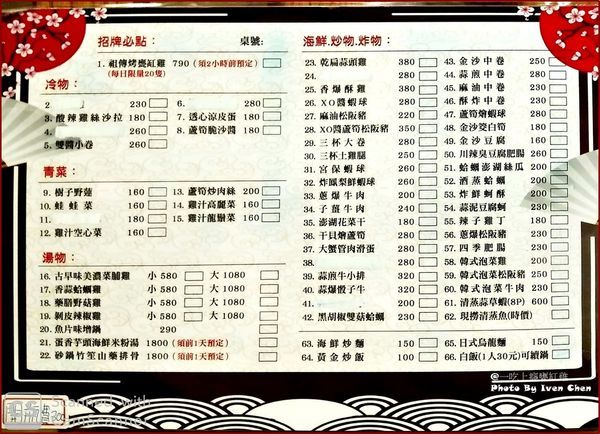 招牌必點：
桌號：
1. 祖傳烤甕缸雞 790 (須2小時前預定)
(每日限量20隻)
冷物：
2. 230
3. 酸辣雞絲沙拉 180
4. 180
5. 雙醬小卷 260
6. 250
7. 透心涼皮蛋 180
8. 蘆筍脆沙醬 180
青菜：
9. 樹子野蓮 160
10. 蛙蛙菜 160
11. 160
12. 雞汁空心菜 160
13. 蘆筍炒肉絲 200
14. 雞汁高麗菜 160
15. 雞汁龍鬚菜 160
湯物：
16. 古早味美濃菜脯雞 小 580 大 1080
17. 香蒜蛤蠣雞 小 580 大 1080
18. 藥膳野菇雞 小 580 大 1080
19. 剝皮辣椒雞 小 580 大 1080
20. 魚片味增鍋 290
21. 蛋香芋頭海鮮米粉湯 1800 (須前1天預定)
22. 砂鍋竹笙山藥排骨 1800 (須前1天預定)
海鮮.炒物.炸物：
23. 乾扁蒜頭雞 380
24. 380
25. 香爆酥雞 380
26. XO醬蝦球 380
27. 麻油松阪豬 350
28. XO醬蘆筍松阪豬 350
29. 三杯大卷 350
30. 三杯土雞腿 350
31. 宮保蝦球 350
32. 炸鳳梨鮮蝦球 350
33. 蔥爆牛肉 350
34. 子薑牛肉 240
35. 澎湖花菜干 240
36. 干貝燴蘆筍 240
37. 大蟹管肉滑蛋 240
38.
39. 蒜煎牛小排 320
40. 蒜爆骰子牛 320
41. 320
42. 黑胡椒雙菇蛤蠣 230
43. 金沙中卷 250
44. 蒜煎中卷 250
45. 麻油中卷 260
46. 酥炸中卷 260
47. 蘆筍燴蝦球 260
48. 金沙筊白筍 260
49. 金沙豆腐 160
50. 川辣臭豆腐肥腸 260
51. 蛤蠣澎湖絲瓜 200
52. 酒蒸蛤蠣 200
53. 炸鮮蚵酥 200
54. 蒜泥豆腐蚵 200
55. 辣子雞丁 200
56. 蔥爆松阪豬 200
57. 四季肥腸 200
58. 韓式泡菜雞 200
59. 韓式泡菜松阪豬 200
60. 韓式泡菜牛肉 200
61. 清蒸蒜草蝦(8P) 600
62. 現撈清蒸魚(時價)
63. 海鮮炒麵 160
64. 黃金炒飯 100
65. 日式烏龍麵 160
66. 白飯(1人30元)可續鍋
@一吃上癮甕缸雞
Photo By Iven Chen
Scanned with
CamScanner